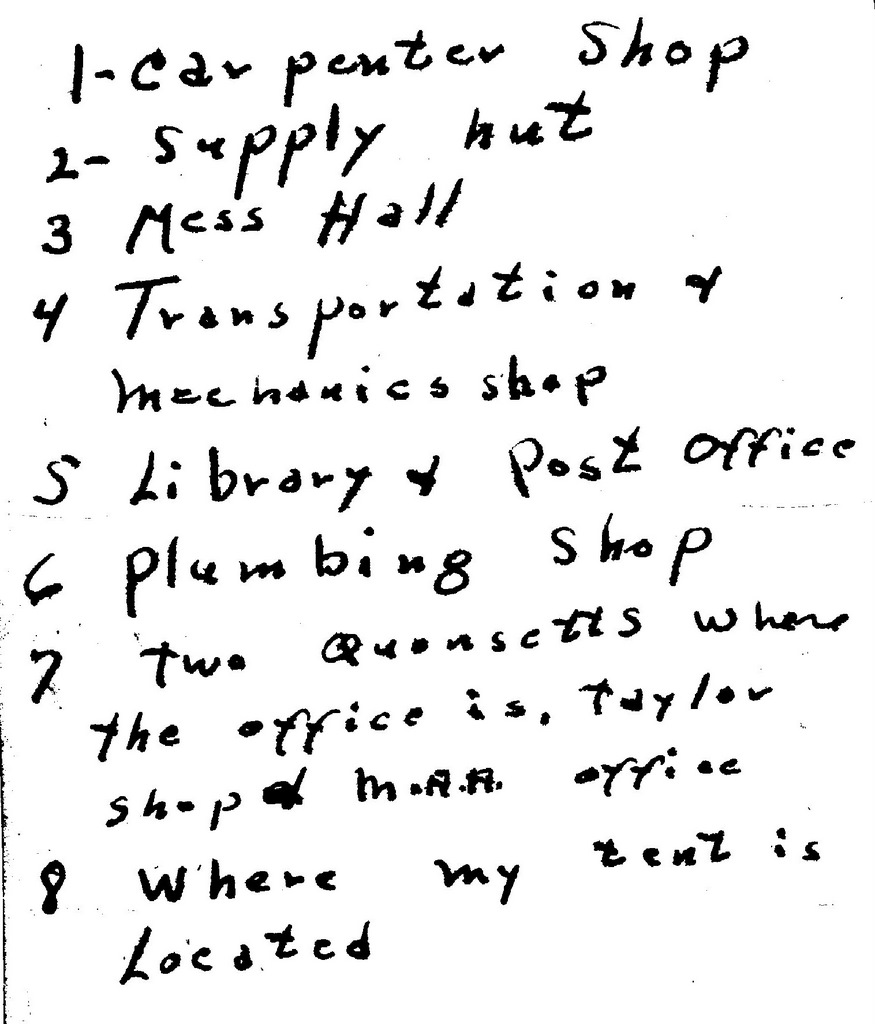 1- Carpenter Shop
2- Supply hut
3 Mess Hall
4 Transportation &
mechanics shop
5 Library & Post Office
6 Plumbing Shop
7 Two Quonsetts where
the office is, Taylor
shop & M.A.A. office
8 Where my tent is
Located